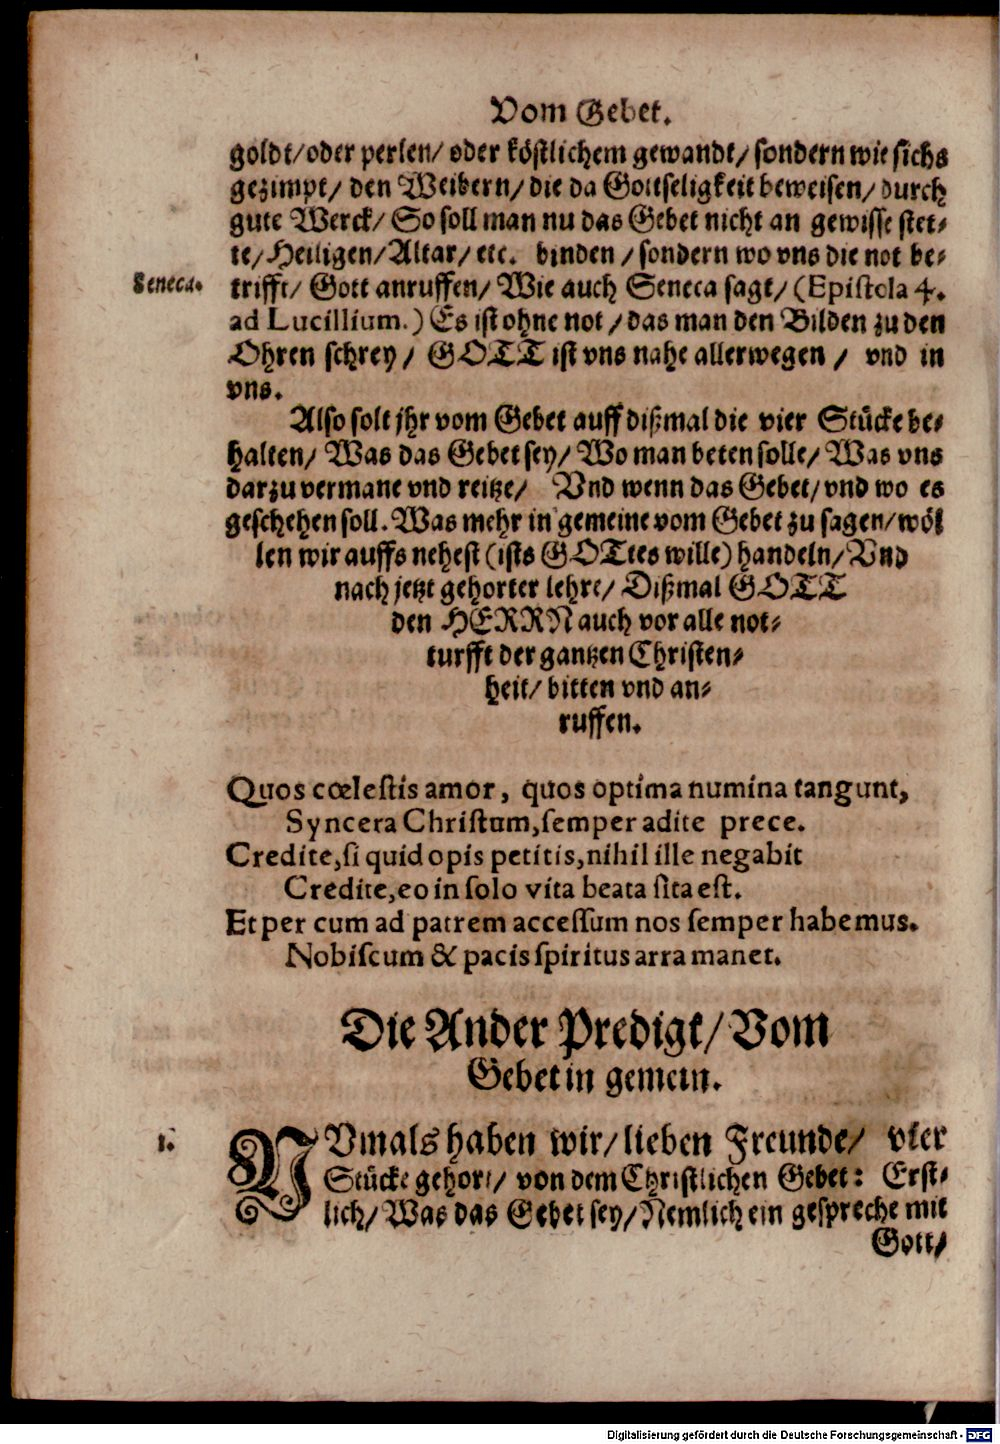 Vom Gebet.
goldt/ oder perlen/ oder köstlichem gewandt/ sondern wie sichs
gezimpt/ den Weibern/ die da Gottseligkeit beweisen/ durch
gute Werck/ So soll man nu das Gebet nicht an gewisse stet-
te/ Heiligen/ Altar/ etc. binden / sondern wo vns die not be-
Seneca.
trifft/ Gott anruffen/ Wie auch Seneca sagt/ (Epistola 4.
ad Lucillium.) Es ist ohne not / das man den Bilden zu den
Ohren schrey / GOTT ist vns nahe allerwegen / vnd in
vns.
Also solt jhr vom Gebet auff dißmal die vier Stücke be-
halten/ Was das Gebet sey/ Wo man beten solle/ Was vns
darzu vermane vnd reitze/ Vnd wenn das Gebet/ vnd wo es
geschehen soll. Was mehr in gemeine vom Gebet zu sagen/ wöl
len wir auffs nehest (ists GOTtes wille) handeln/ Vnd
nach jetzt gehorter lehre/ Dißmal GOTT
den HERRN auch vor alle not-
turfft der gantzen Christen-
heit/ bitten vnd an-
ruffen.
Quos cœlestis amor, quos optima numina tangunt,
Syncera Christum, semper adite prece.
Credite, si quid opis petitis, nihil ille negabit
Credite, eo in solo vita beata sita est.
Et per cum ad patrem accessum nos semper habemus.
Nobiscum & pacis spiritus arra manet.
Die Ander Predigt/ Vom
Gebet in gemein.
1.
NVmals haben wir/ lieben Freunde/ vier
Stücke gehort/ von dem Christlichen Gebet: Erst-
lich/ Was das Gebet sey/ Nemlich ein gespreche mit
Gott/
Digitalisierung gefördert durch die Deutsche Forschungsgemeinschaft - DFG